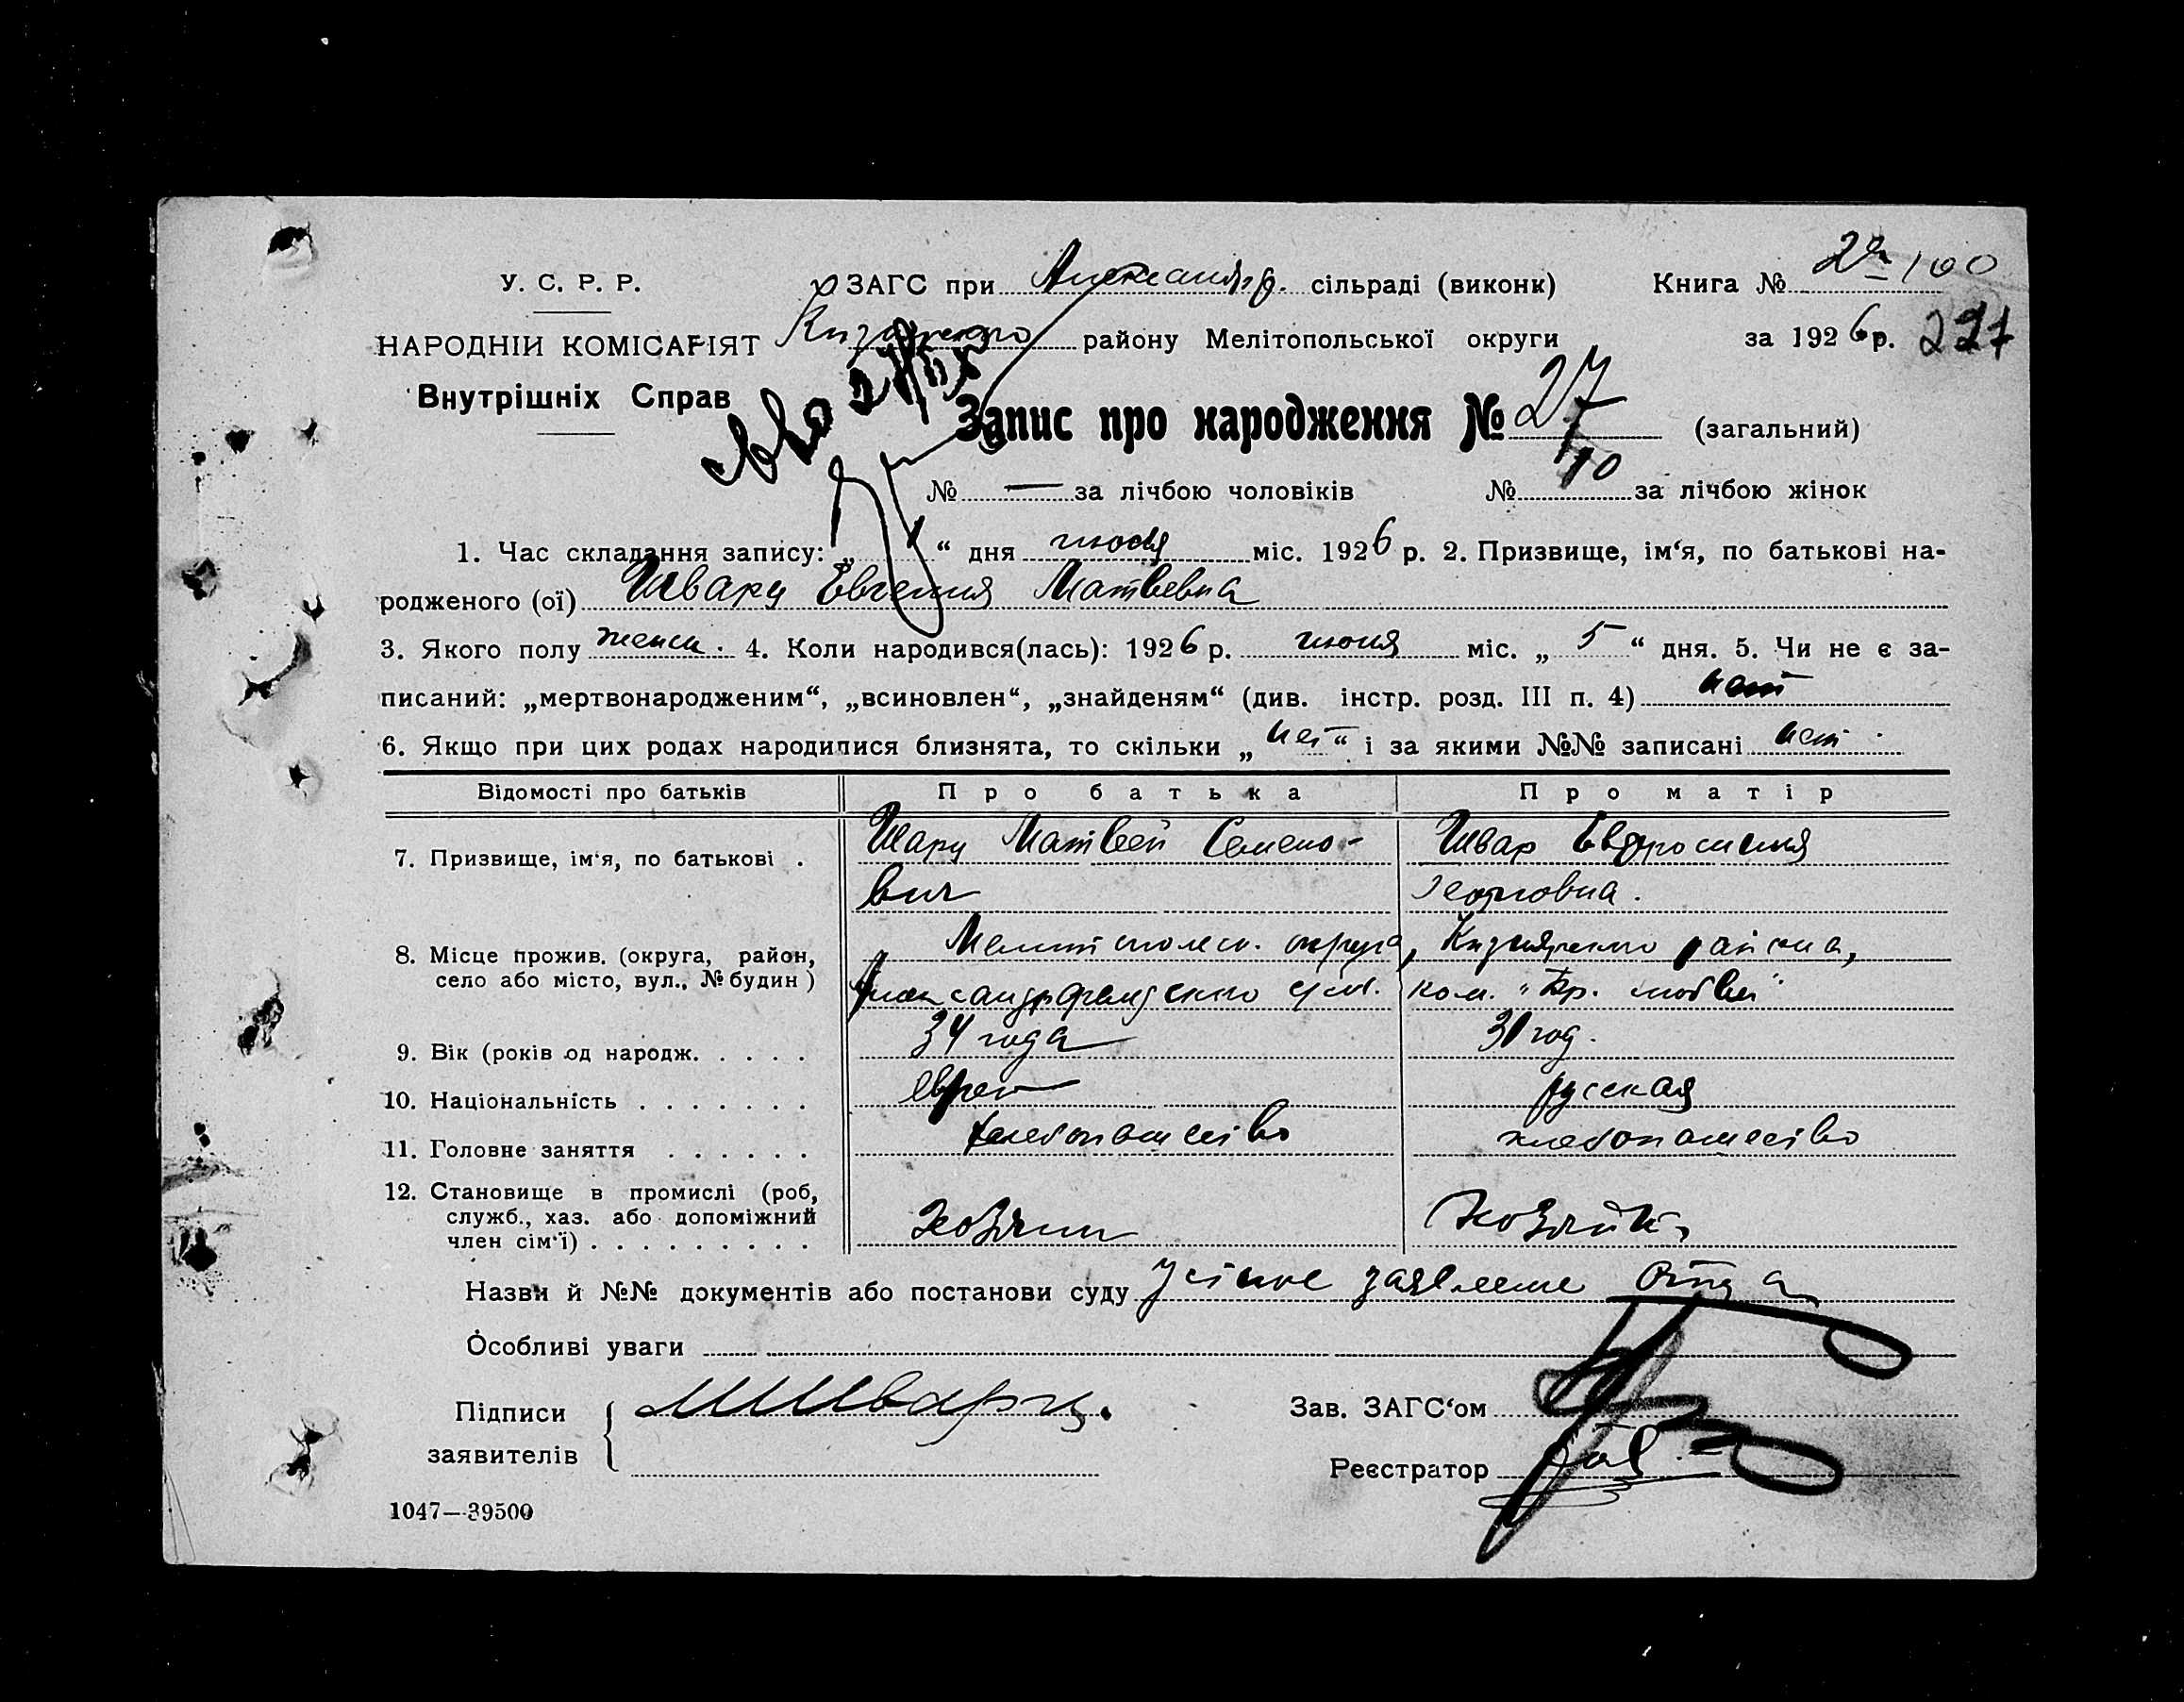 У. С. Р. Р.
НАРОДНІЙ КОМІСАРІЯТ
Внутрішніх Справ
ЗАГС при Александр. сільраді (виконк)
району Мелітопольської округи
Книга № 2й 100
за 1926 р. 221
Запис про народження № 27 (загальний)
№ — за лічбою чоловіків № 10 за лічбою жінок
1. Час складання запису: „ “ дня июля міс. 1926 р. 2. Призвище, ім‘я, по батькові на-
родженого (ої) Шварц Евгения Матвеевна
3. Якого полу женск. 4. Коли народився(лась): 1926 р. июня міс. „ 5 “ дня. 5. Чи не є за-
писаний: „мертвонародженим“, „всиновлен“, „знайденям“ (див. інстр. розд. III п. 4) нет
6. Якщо при цих родах народилися близнята, то скільки „ нет “ і за якими №№ записані нет
Відомості про батьків Про батька Про матір
7. Призвище, ім‘я, по батькові . Шварц Матвей Семено- Швар Евдросиния
вич Георговна.
8. Місце прожив. (округа, район, Мелитополск. округа, Кизиярского района,
село або місто, вул., № будин) ком. „Бр. любви“
9. Вік (років од народж. . . . . 34 года 31 год.
10. Національність . . . . . . . еврей русская
11. Головне заняття . . . . . . хлебопашество хлебопашество
12. Становище в промислі (роб,
служб., хаз. або допоміжний
член сім‘ї) . . . . . . . . . Хозяин Хозяйк
Назви й №№ документів або постанови суду Устное заявление Отца
Особливі уваги
Підписи
заявителів
МШварц.
Зав. ЗАГС‘ом
Реєстратор
1047—39500